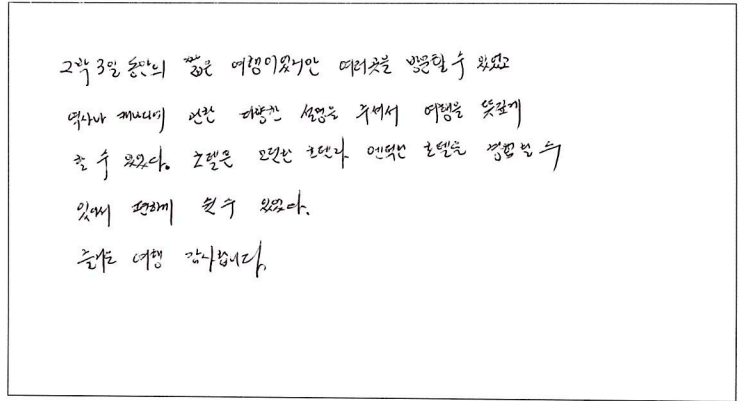 2박 3일 동안의 짧은 여행이었지만 여러곳을 방문할 수 있었고
역사나 관한 다양한 설명을 주셔서 여행을 뜻깊게
할 수 있었다. 호텔은 모던한 호텔과 호텔을 경험할 수
있어서 편하게 쉴 수 있었다.
여행 감사합니다.